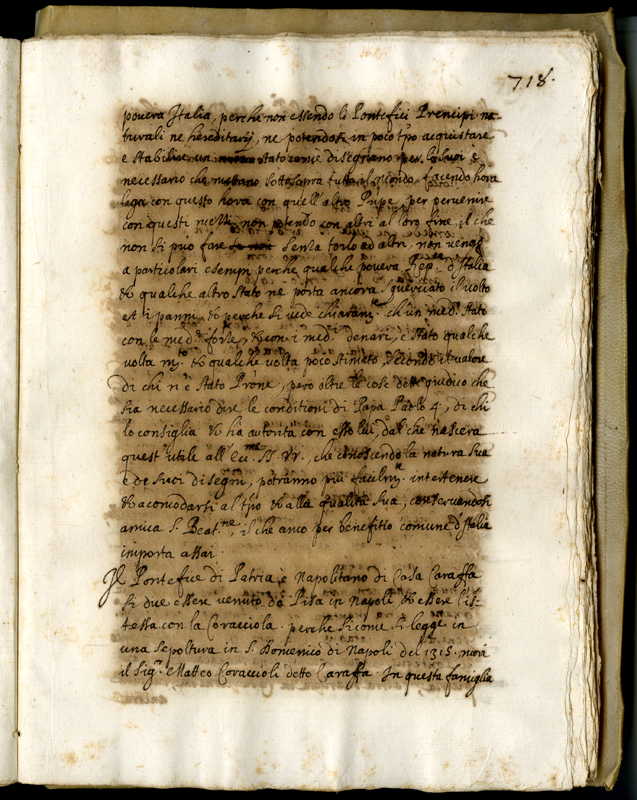 718.
povera Italia, perche non essendo li Pontefici Prencipi na-
turali ne hereditarij, ne potendosi in poco tpo acquistare
e stabilire un stato come disegnano per li suoi è
necessario che mettano sottosopra tutto il mondo, facendo hora
lega con questo hora con quell'altro Pnpe, per pervenire
con questi mezzi, non potendo con altri al loro fine, il che
non si può fare se non senza torto ad altri, non vengo
a particolari esempi perche qualche povera Rep.ca d'Italia
& qualche altro stato ne porta ancora squarciato il volto
et i panni, & perche si vede chiaram.te ch'un med.o stato
con le med.e forze, & con i med.i denari, è stato qualche
volta m.to & qualche volta poco stimato, secondo il valore
di chi n'è stato Prone, però oltre le cose dette giudico che
sia necessario dire le conditioni di Papa Paolo 4.o, di chi
lo consiglia & ha autorità con esso lui, dal che nascerà
quest'utile all'Ecc.me SS. VV., che conoscendo la natura sua
e de suoi disegni, potranno più facilm.te intertenere
& acomodarsi al tpo & alla qualità sua, conservandosi
amica S. Beat.ne, il che anco per benefitio comune d'Italia
importa assai.
Il Pontefice di Patria è Napolitano di Casa Caraffa
si due essere venuto da Pisa in Napoli & essere l'is-
tessa con la Coracciola. perche si come si legge in
una sepoltura in S. Domenico di Napoli del 1315. morì
il Sig.r Matteo Coraccioli detto Caraffa. In questa famiglia